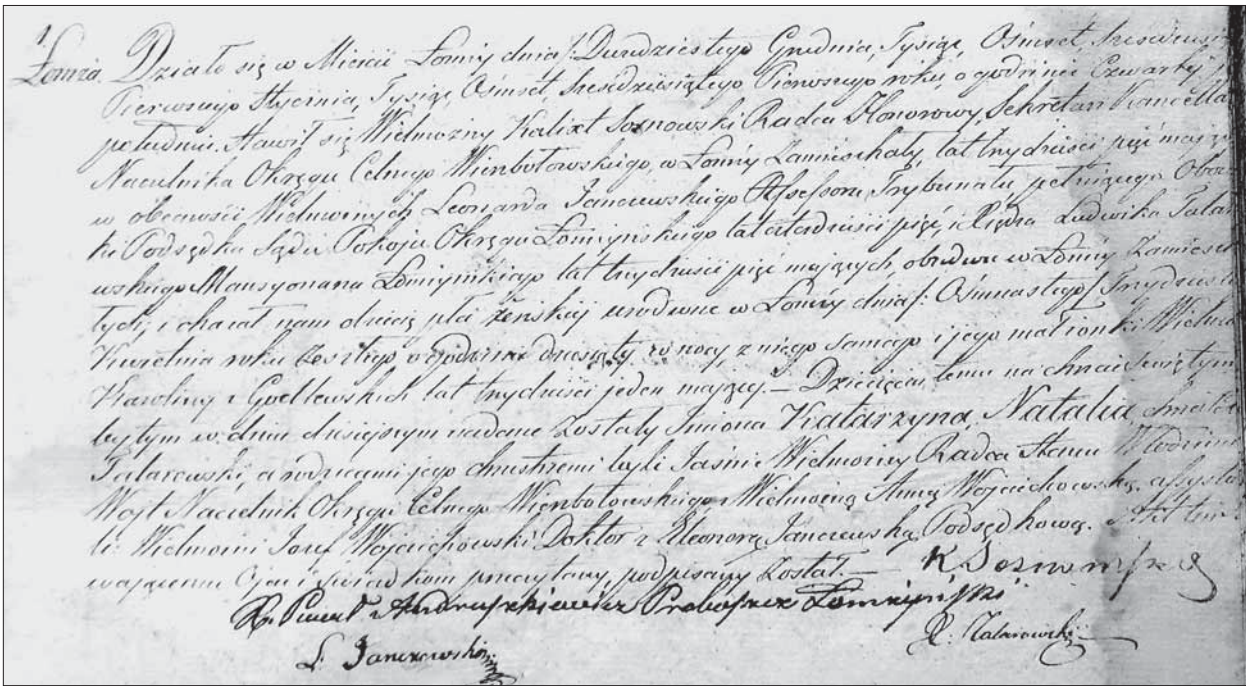 1
Łomża. Działo się w Mieście Łomży dnia /: Dwudziestego Grudnia, Tysiąc, Ośmset, Sześćdziesi
Pierwszego Stycznia, Tysiąc, Ośmset, Sześćdziesiątego Pierwszego roku, o godzinie Czwartej
południu. Stawił się Wielmożny Kalixt Sosnowski Radca Honorowy, Sekretarz Kancella
Naczelnika Okręgu Celnego Wierzbołowskiego, w Łomży Zamieszkały, lat trzydzieści pięć mając
w obecności Wielmożnych Leonarda Janczewskiego Assessora Trybunału, pełniącego Obow
ki Podsędka Sądu Pokoju Okręgu Łomżyńskiego lat czterdzieści pięć, i Xiędza Ludwika Tala
wskiego Mansyonarza Łomżyńskiego lat trzydzieści pięć mających, obudwu w Łomży Zamieszk
łych, i okazał nam dziecię płci żeńskiej urodzone w Łomży dnia /: Ośmnastego / Trzydzies
Kwietnia roku Zeszłego o godzinie dziesiątej w nocy, z niego Samego i jego małżonki Wielm
Karoliny z Godlewskich lat trzydzieści jeden mającej. — Dziecięciu temu na chrzcie świętym
bytym w dniu dzisiejszym nadane Zostały Imiona Katarzyna, Natalia,
Talarowski, a rodzicami jego chrzestnemi byli Jaśnie Wielmożny Radca Stanu Włodzimi
Wojt Naczelnik Okręgu Celnego Wierzbołowskiego z Wielmożną Anną Wojciechowską. assysto
li: Wielmożni Józef Wojciechowski Doktor z Eleonorą Janczewską Podsędkową. Akt ten
wającemu Ojcu i świadkom przeczytany, podpisany Został. — K Sosnowski
X. Paweł Andruszkiewicz Proboszcz Łomżyński
L. Janczewski X. Talarowski